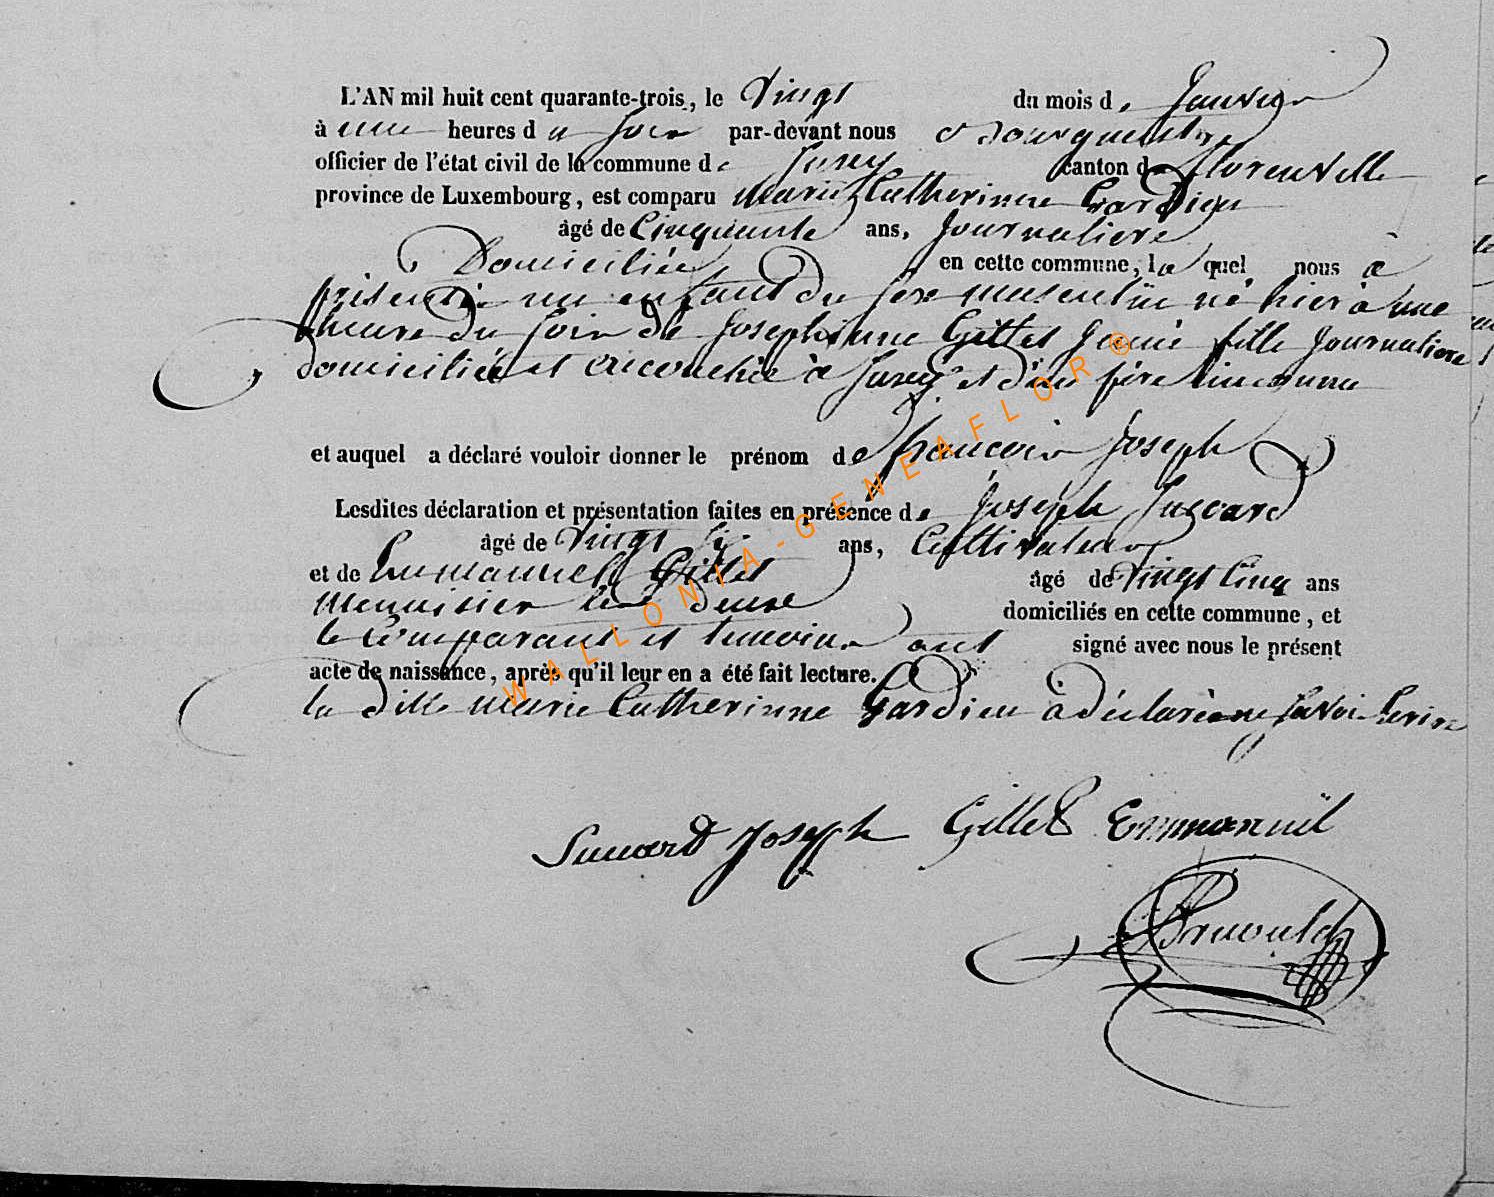 L'AN mil huit cent quarante-trois, le Vingt du mois de Janvier
à une heures du Soir par-devant nous
officier de l'état civil de la commune de Suxy canton de florenville
province de Luxembourg, est comparu Marie Catherinne Gardien
âgé de Cinquante ans, Journaliere
Domiciliée en cette commune, la quel nous à
présentée un enfant du sexe masculin né hier à une
heure du soir de Josephinne Gillet Jeune fille Journaliere
domiciliée et accouchée à Suxy et d'un père inconnu
et auquel a déclaré vouloir donner le prénom de francois Joseph
Lesdites déclaration et présentation faites en présence de Joseph
âgé de Vingt Six ans, Cultivateur
et de Emmanuel Gillet âgé de Vingt Cinq ans
Menuisier les deux domiciliés en cette commune, et
le Comparant et temoins ont signé avec nous le présent
acte de naissance, après qu'il leur en a été fait lecture.
la ditte Marie Catherinne Gardien à déclarée ne savoir
Joseph Gillet Emmanuel
WALLONIA-GENEAFLOR®